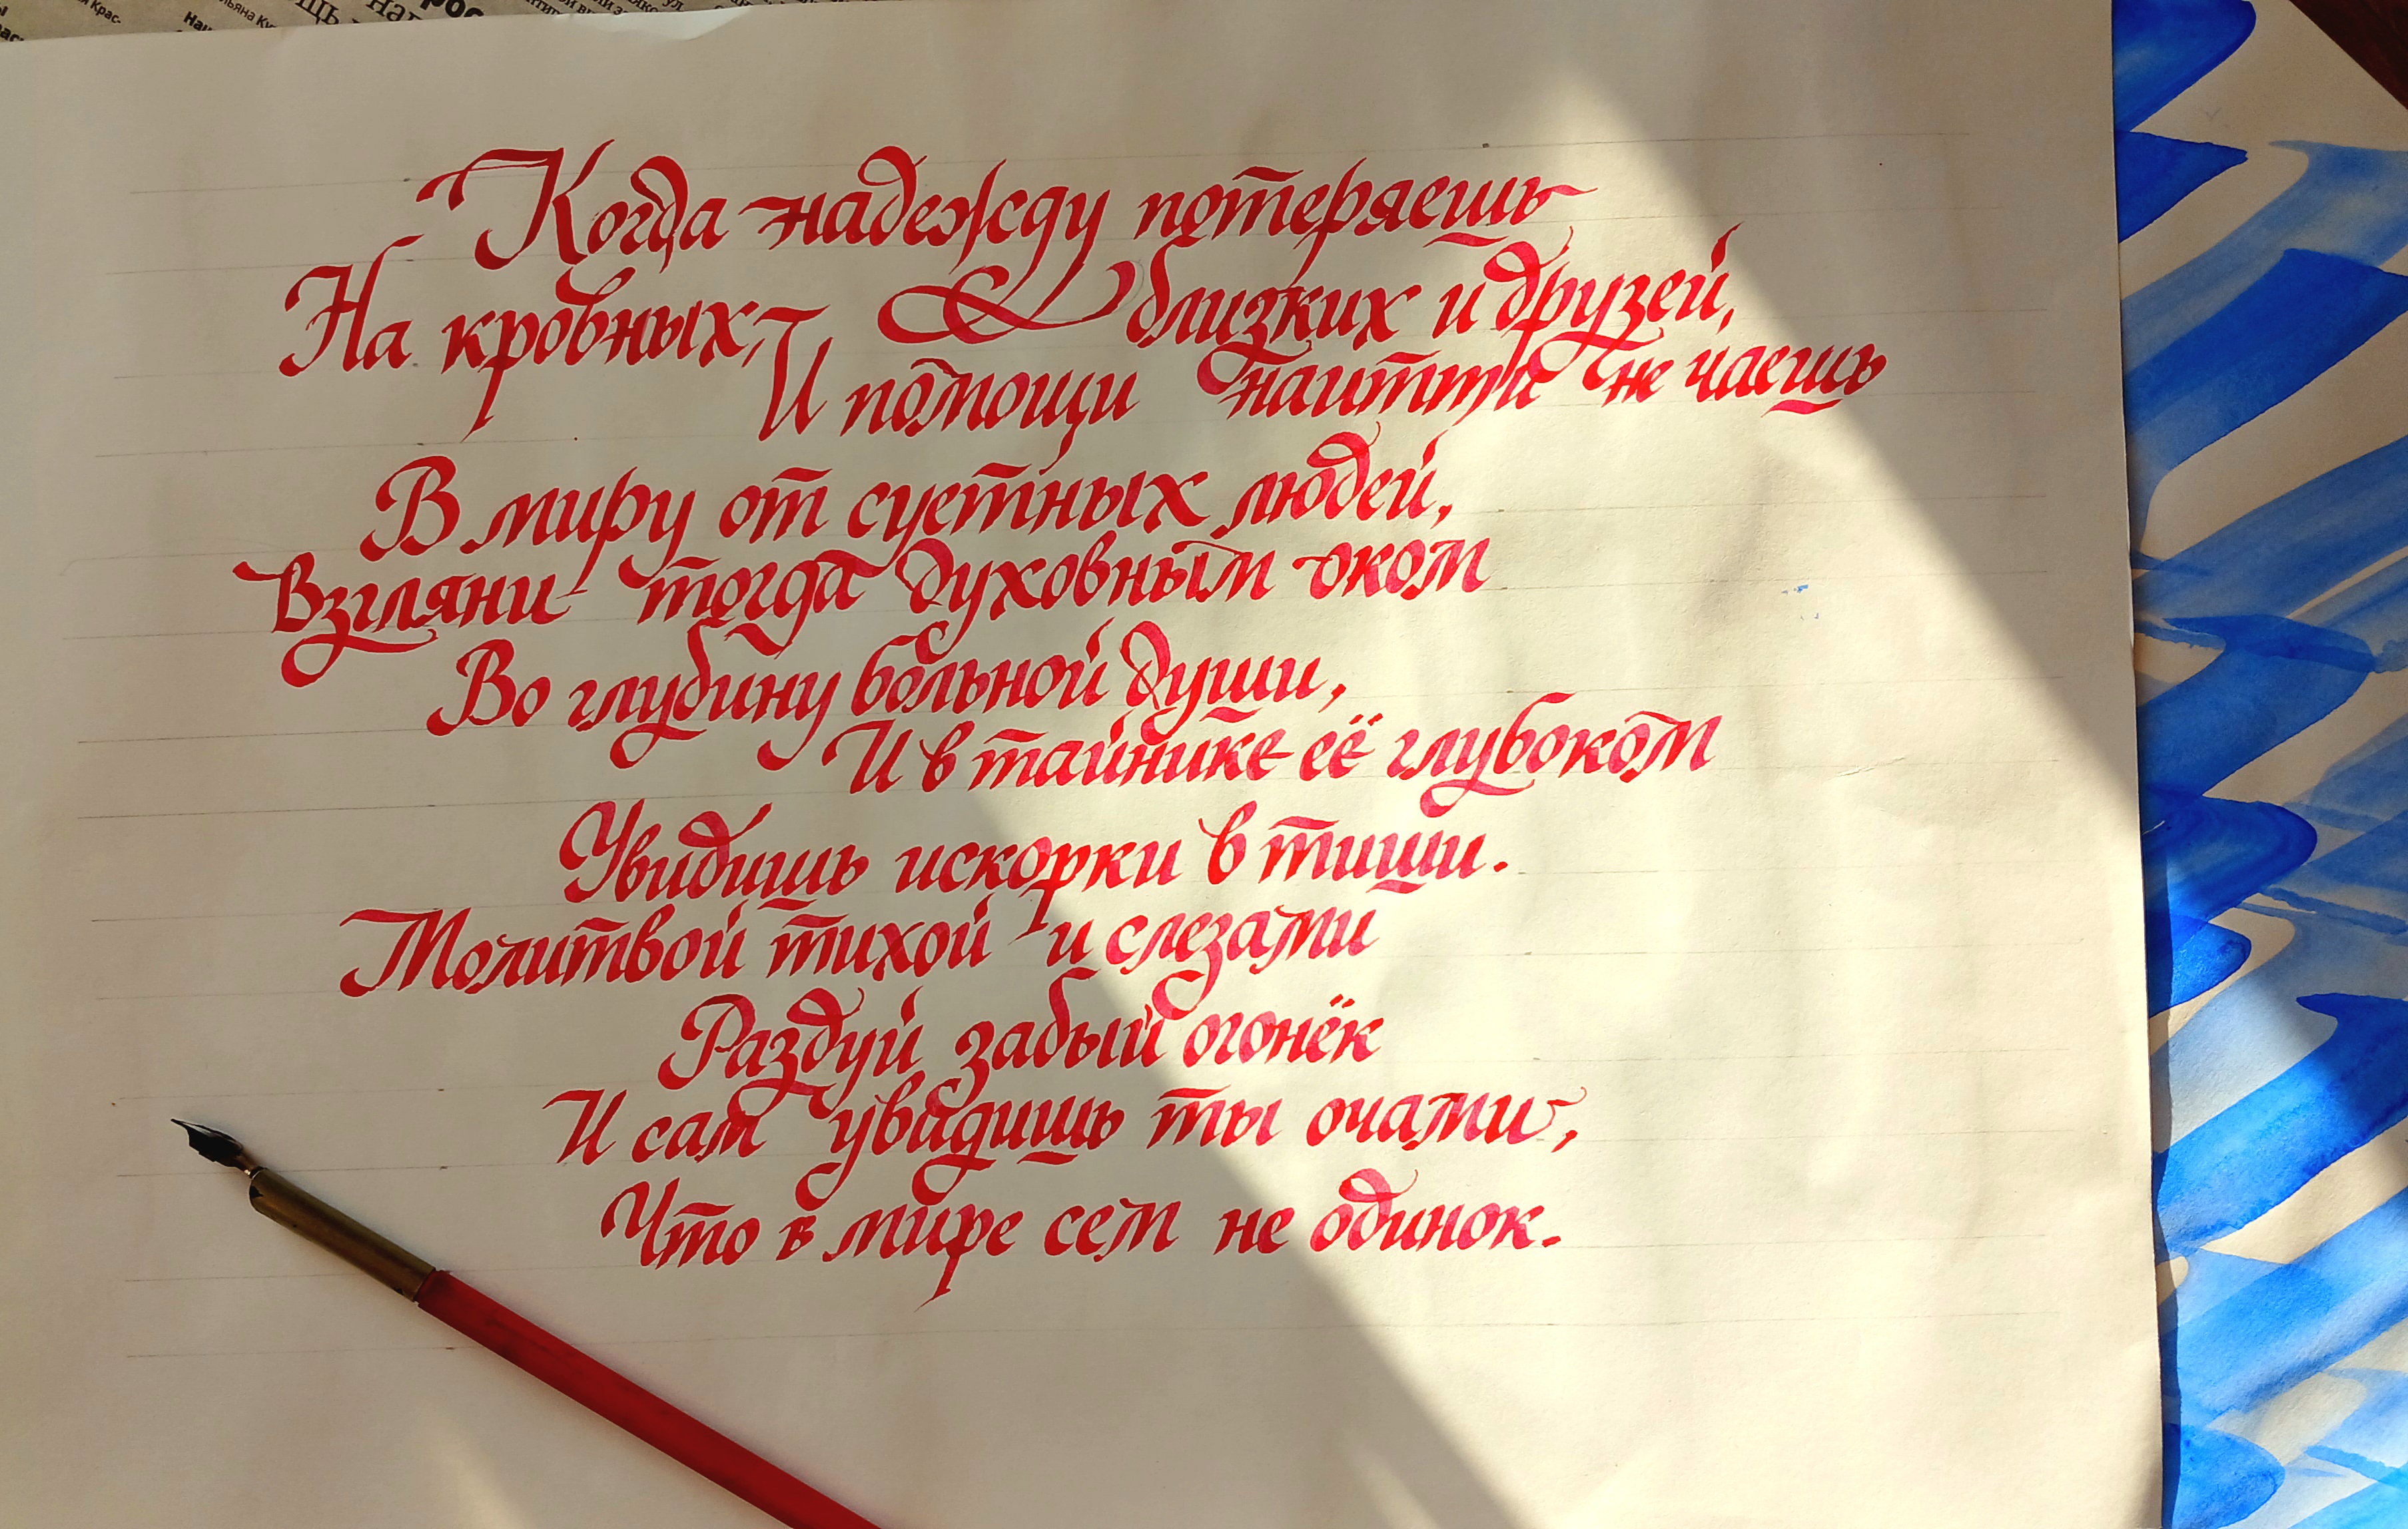 Когда надежду потеряешь
На кровных, близких и друзей,
И помощи наитти не чаешь
В миру от суетных людей,
Взгляни тогда духовным оком
Во глубину больной души,
И в тайнике её глубоком
Увидишь искорки в тиши.
Молитвой тихой и слезами
Раздуй забый огонёк
И сам увидишь ты очами,
Что в мире сем не одинок.